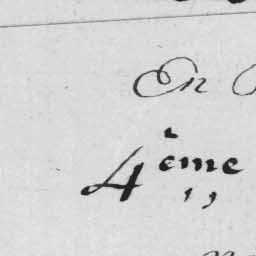 En
4ème